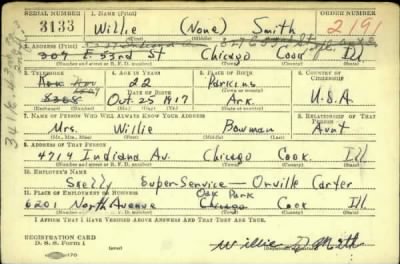 SERIAL NUMBER 1. NAME (Print) ORDER NUMBER
3133 Willie (None) Smith 2191
(First) (Middle) (Last)
2. ADDRESS (Print)
307 E. 53rd St Chicago Cook Ill
(Number and street or R. F. D. number) (Town) (County) (State)
3. TELEPHONE 4. AGE IN YEARS 5. PLACE OF BIRTH 6. COUNTRY OF CITIZENSHIP
22 Parkins
DATE OF BIRTH (Town or county)
Oct. 25 1917 Ark. U.S.A
(Mo.) (Day) (Yr.) (State or country)
7. NAME OF PERSON WHO WILL ALWAYS KNOW YOUR ADDRESS 8. RELATIONSHIP OF THAT PERSON
Mrs. Willie Bowman Aunt
(Mr., Mrs., Miss) (First) (Middle) (Last)
9. ADDRESS OF THAT PERSON
4719 Indiana Av. Chicago Cook. Ill
(Number and street or R. F. D. number) (Town) (County) (State)
10. EMPLOYER'S NAME
Super Service — Orville Carter
11. PLACE OF EMPLOYMENT OR BUSINESS Oak Park
6201 North Avenue Chicago Cook Ill
(Number and street or R. F. D. number) (Town) (County) (State)
I AFFIRM THAT I HAVE VERIFIED ABOVE ANSWERS AND THAT THEY ARE TRUE.
REGISTRATION CARD
D. S. S. Form 1 Willie Smith